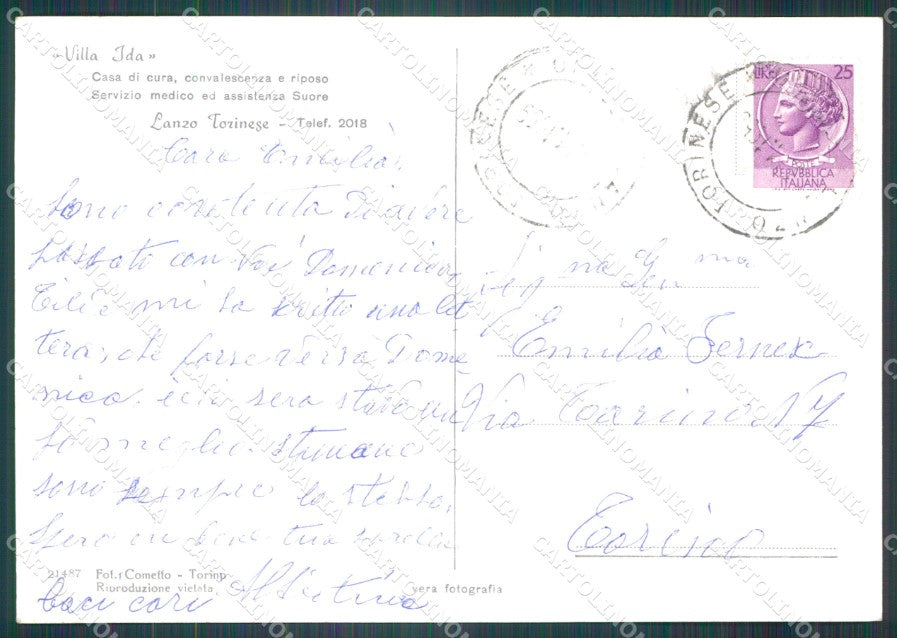 «Villa Ida»
Casa di cura, convalescenza e riposo
Servizio medico ed assistenza Suore
Lanzo Torinese - Telef. 2018
Cara Emilia,
Sono contenta Di avere
passato con Voi Domenica
mi ha scritto una let
tera, che forse verra Dome
nica. ieri sera stavo un
po meglio. stamane
sono sempre lo stesso.
Spero in bene tua sorella
baci cari Albertina
21487 Fot. Cometto - Torino
Riproduzione vietata
vera fotografia
LIRE 25
POSTE
REPVBBLICA
ITALIANA
TORINESE
Emilia
Via 17
Torino
CARTOLINOMANIA